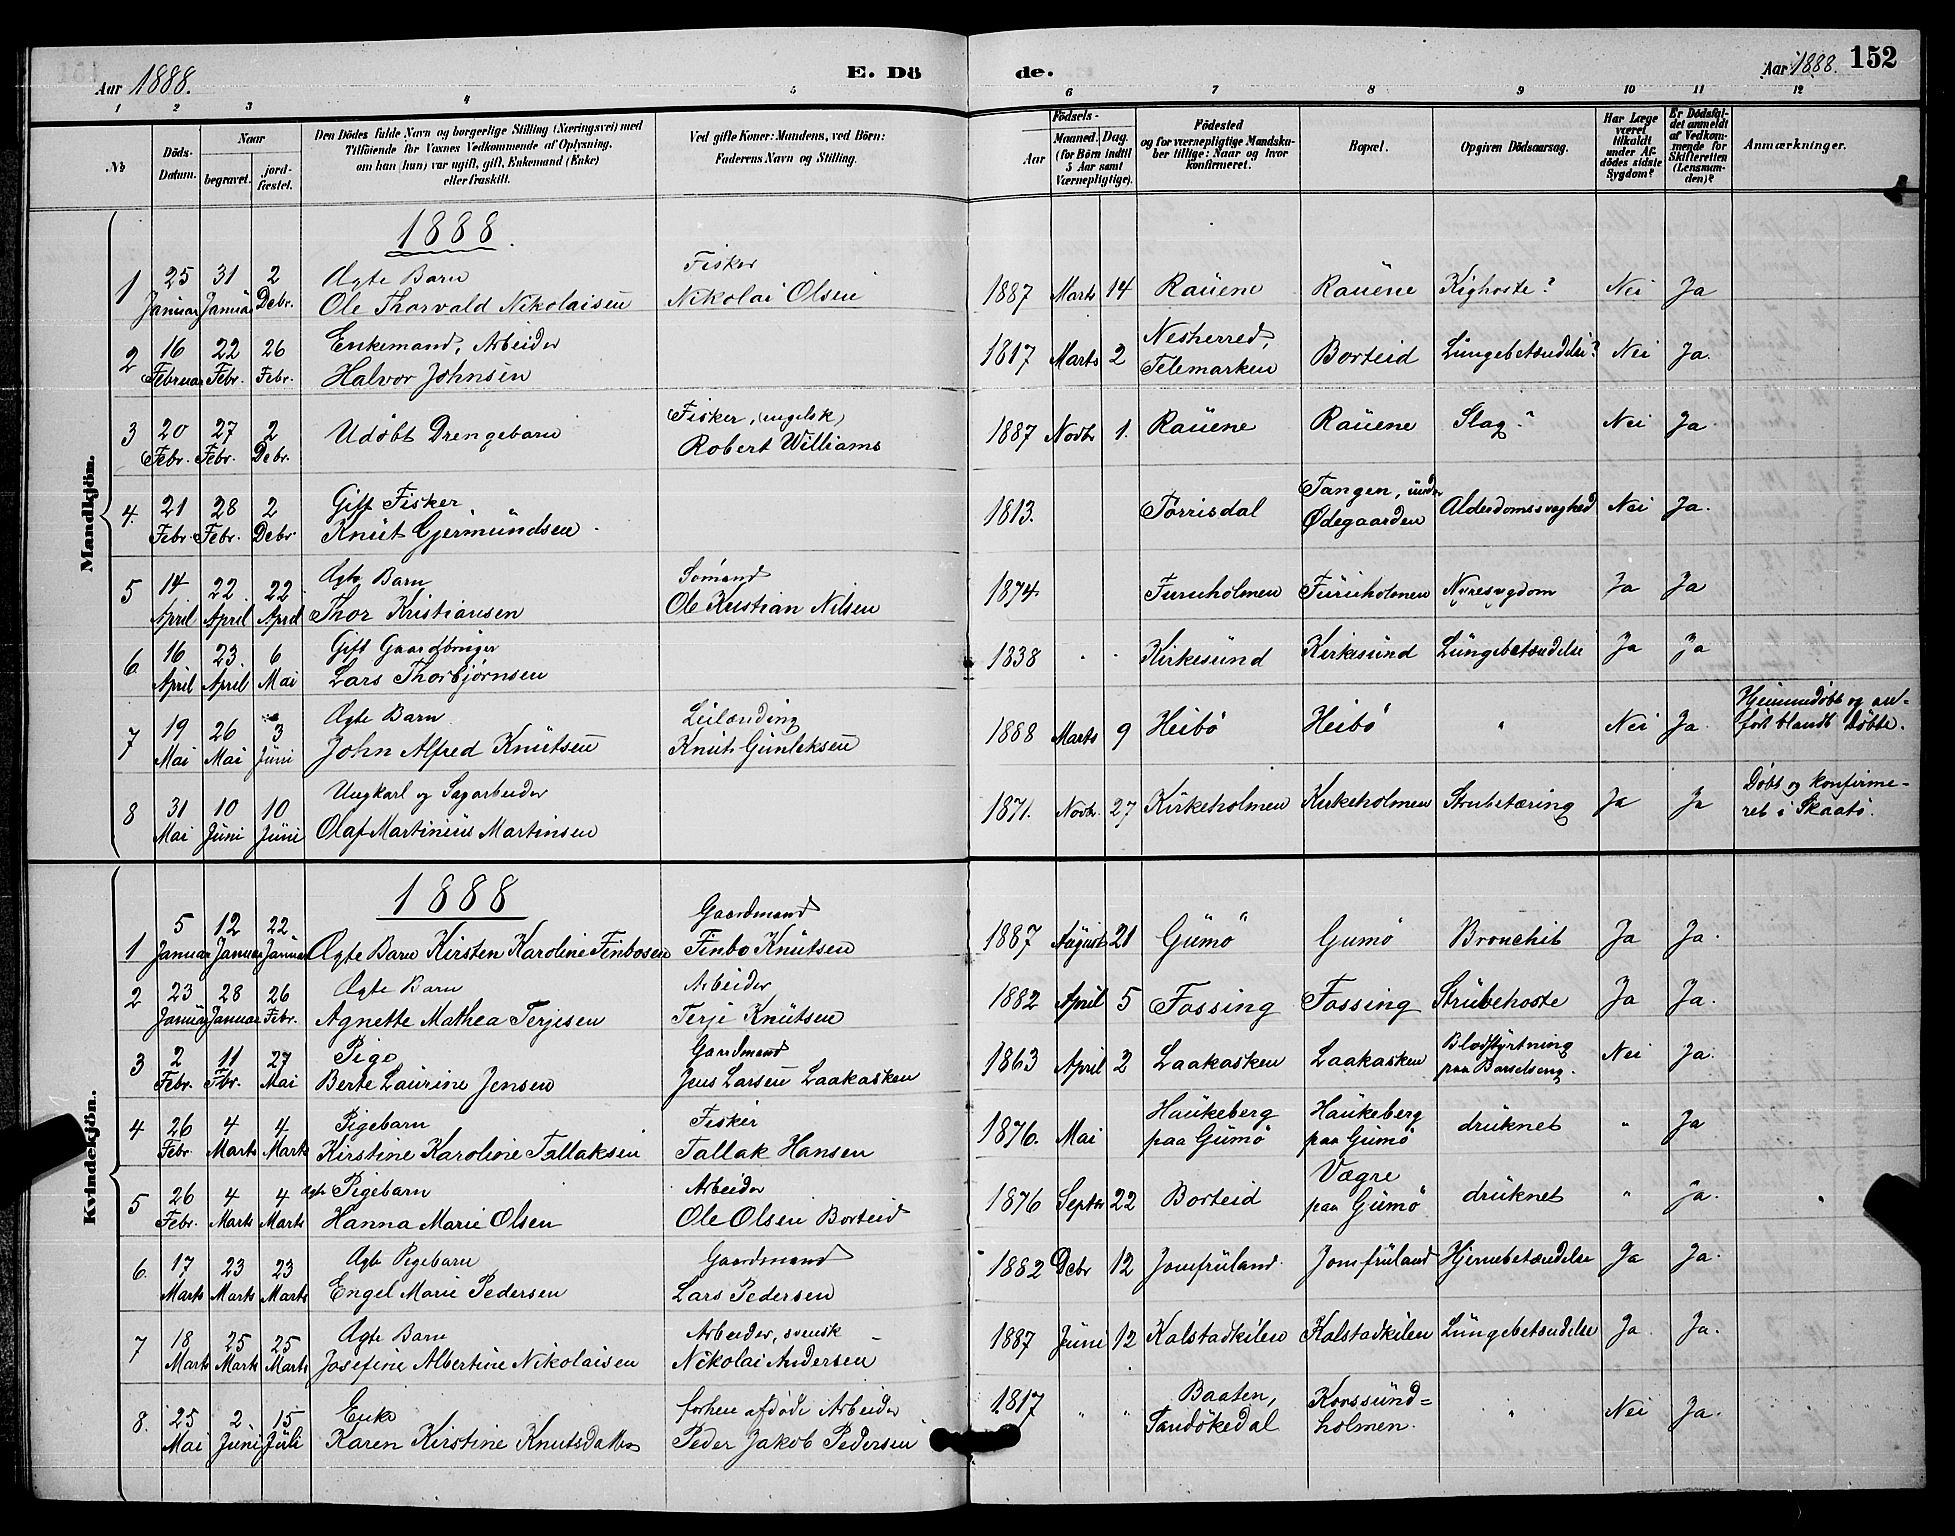 Aar 1888. E. Dö de. Aar 1888. 152
1 2 3 4 5 6 7 8 9 10 11 12
No
Döds-
Datum.
Naar
begravet.
jord-
fæstet.
Den Dödes fulde Navn og borgerlige Stilling (Næringsvei) med
Tilföiende for Voxnes Vedkommende af Oplysning,
om han (hun) var ugift, gift, Enkemand (Enke)
eller fraskilt.
Ved gifte Koner: Mandens, ved Börn:
Faderens Navn og Stilling.
Födsels-
Aar
Maaned. Dag.
(for Börn indtil
5 Aar samt
Værnepligtige).
Födested
og for værnepligtige Mandska-
ber tillige: Naar og hvor
konfirmeret.
Bopæl.
Opgiven Dödsaarsag.
Har Læge
været
tilkaldt
under Af-
dödes sidste
Sygdom?
Er Dödsfal-
det anmeldt
af Vedkom-
mende for
Skifteretten
(Lensman-
den)?
Anmærkninger.
Mandkjön.
1888.
1 25 31 2 Ægte Barn Fisker
Januar Januar Debr. Ole Thorvald Nikolaisen Nikolai Olsen 1887 Marts 14 Rauene Rauene Kighoste? Nei Ja
2 16 22 26 Enkemand, Arbeider Nesherred,
Februar Febr. Febr. Halvor Johnsen 1817 Marts 2 Telemarken Borteid Lungebetændelse? Nei Ja.
3 20 27 2 Udöbt Drengebarn Fisker, (engelsk)
Febr. Febr. Debr. Robert Williams 1887 Novbr 1. Rauene Rauene Slag? Nei Ja.
4. 21 28 2 Gift Fisker Tangen, under
Febr. Febr. Debr. Knut Gjermundsen 1813. Torrisdal Ødegaarden Alderdomssvaghed Nei Ja.
5 14 22 22 Ægte Barn Sömand
April April April Thor Kristiansen Ole Kristian Nilsen 1874 Furuholmen Furuholmen Nyresygdom Ja Ja
6 16 23 6 Gift Gaardbruger
April April Mai Lars Thorbjörnsen 1838 " " Kirkesund Kirkesund Lungebetændelse Ja Ja
7 19 26 3 Ægte Barn Leilænding Hjemmedöbt og an-
Mai Mai Juni John Alfred Knutsen Knut Gunleksen 1888 Marts 9 Heibö Heibö " Nei Ja. fört blandt Döbte.
8 31 10 10 Ungkarl og Sagarbeider Döbt og konfirme-
Mai Juni Juni Olaf Martinius Martinsen 1871. Novbr. 27 Kirkeholmen Kirkeholmen Strubetæring Ja Ja ret i Skaatö.
Kvindekjön.
1888
1 5 12 22 Gaardmand
Januar Januar Januar Ægte Barn Kirsten Karoline Finbosen Finbo Knutsen 1887 August 21 Gumö Gumö Bronchit Ja Ja.
2 23 28 26 Ægte Barn Arbeider
Januar Januar Febr. Agnette Mathea Terjesen Terje Knutsen 1882 April 5 Fossing Fossing Strubehoste Ja Ja.
3 2 11 27 Pige Gaardmand Blodstyrtning
Febr. Febr. Mai Berte Laurine Jensen Jens Larsen Laakasken 1863 April 2 Laakasken Laakasken paa Barselseng. Nei Ja.
4 26 4 4 Pigebarn Fisker Haukeberg Haukeberg
Febr. Marts Marts Kirstine Karoline Tallaksen Tallak Hansen 1876. Mai paa Gumö paa Gumö druknet " Ja
5 26 4 4 Ægte Pigebarn Arbeider Vægre
Febr. Marts Marts Hanna Marie Olsen Ole Olsen Borteid 1876 Septbr 22 Borteid paa Gumö druknet " Ja.
6. 17 23 23 Ægte Pigebarn Gaardmand
Marts Marts Marts Engel Marie Pedersen Lars Pedersen 1882 Debr 12 Jomfruland. Jomfruland Hjernebetændelse Ja Ja.
7 18 25 25 Ægte Barn Arbeider, svensk
Marts Marts Marts Josefine Albertine Nikolaisen Nikolai Andersen 1887 Juni 12 Kalstadkilen Kalstadkilen Lungebetændelse Ja Ja.
8. 25 2 15 Enke forhen afdöde Arbeider Baaten, Korssund-
Mai Juni Juli Karen Kirstine Knutsdatter Peder Jakob Pedersen 1817 " " Sandökedal holmen. " Nei Ja.